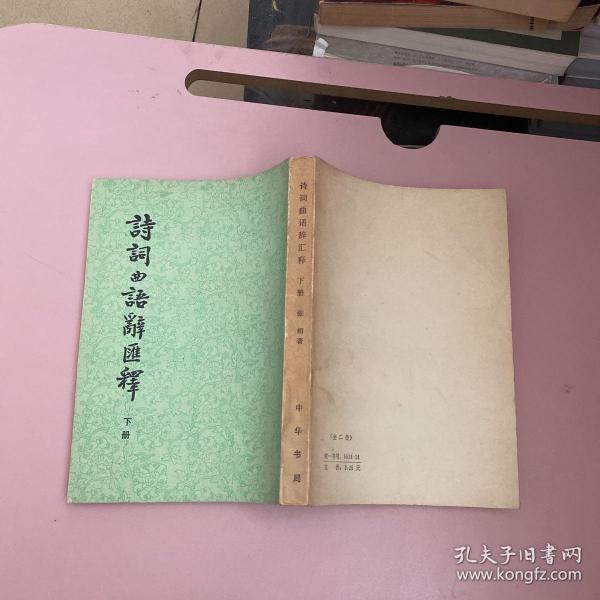 詩詞曲語辭匯釋
下册
诗词曲语辞汇释 下册 张相著
中华书局
(全二册)
统一书号: 9018·14
定价: 2.25 元
孔夫子旧书网
www.kongfz.com